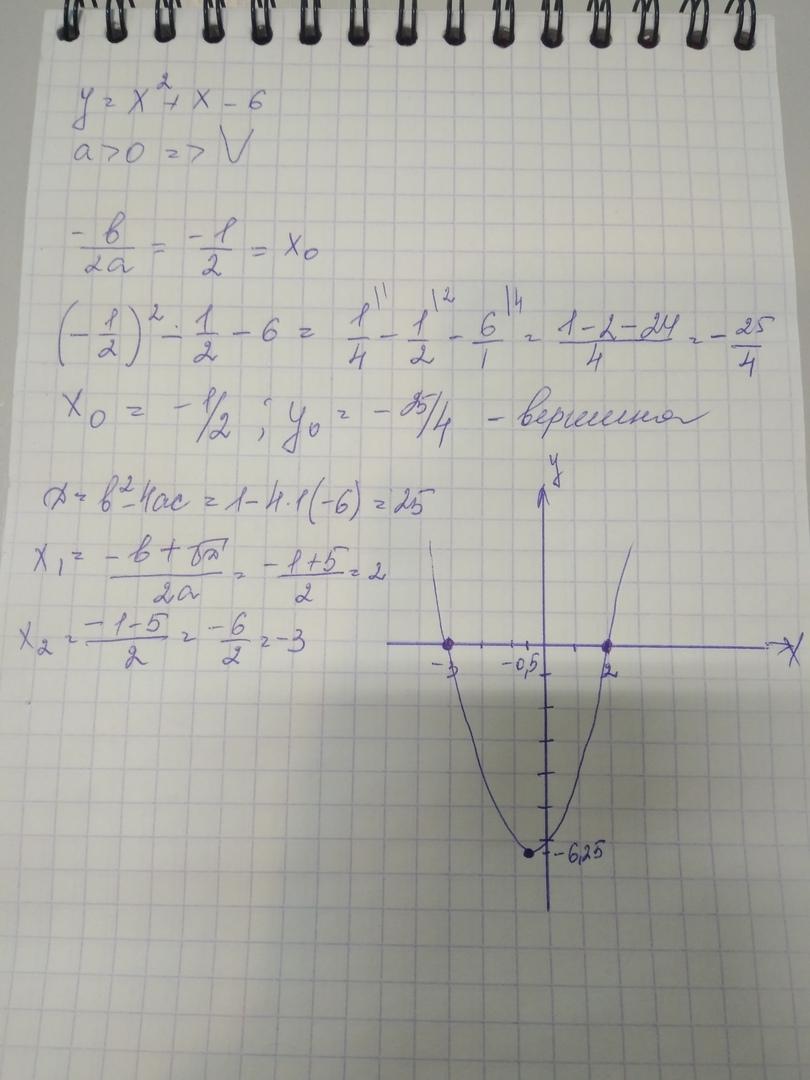 y = x² + x - 6
a > 0 => V
-b/2a = -1/2 = x₀
(-1/2)² - 1/2 - 6 = 1/4 |¹ - 1/2 |² - 6/1 |⁴ = (1-2-24)/4 = -25/4
x₀ = -1/2 ; y₀ = -25/4 - вершина
D = b² - 4ac = 1 - 4·1(-6) = 25
x₁ = (-b + √D)/2a = (-1+5)/2 = 2
x₂ = (-1-5)/2 = -6/2 = -3
y
x
-3
-0,5
2
-6,25